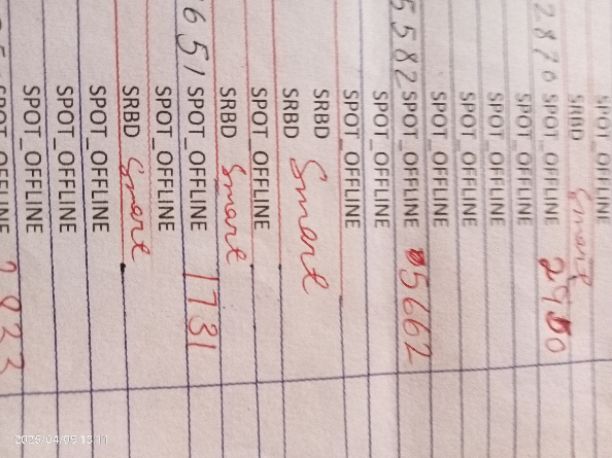 SPOT_OFFLINE
SRBD Smart
2870 SPOT_OFFLINE 2950
SPOT_OFFLINE
SPOT_OFFLINE
SPOT_OFFLINE
SPOT_OFFLINE
5582 SPOT_OFFLINE 5662
SPOT_OFFLINE
SPOT_OFFLINE
SRBD Smart
SRBD
SPOT_OFFLINE
SRBD Smart
651 SPOT_OFFLINE 1731
SPOT_OFFLINE
SRBD Smart
SPOT_OFFLINE
SPOT_OFFLINE
SPOT_OFFLINE
SPOT_OFFLINE
2026/04/09 13:11